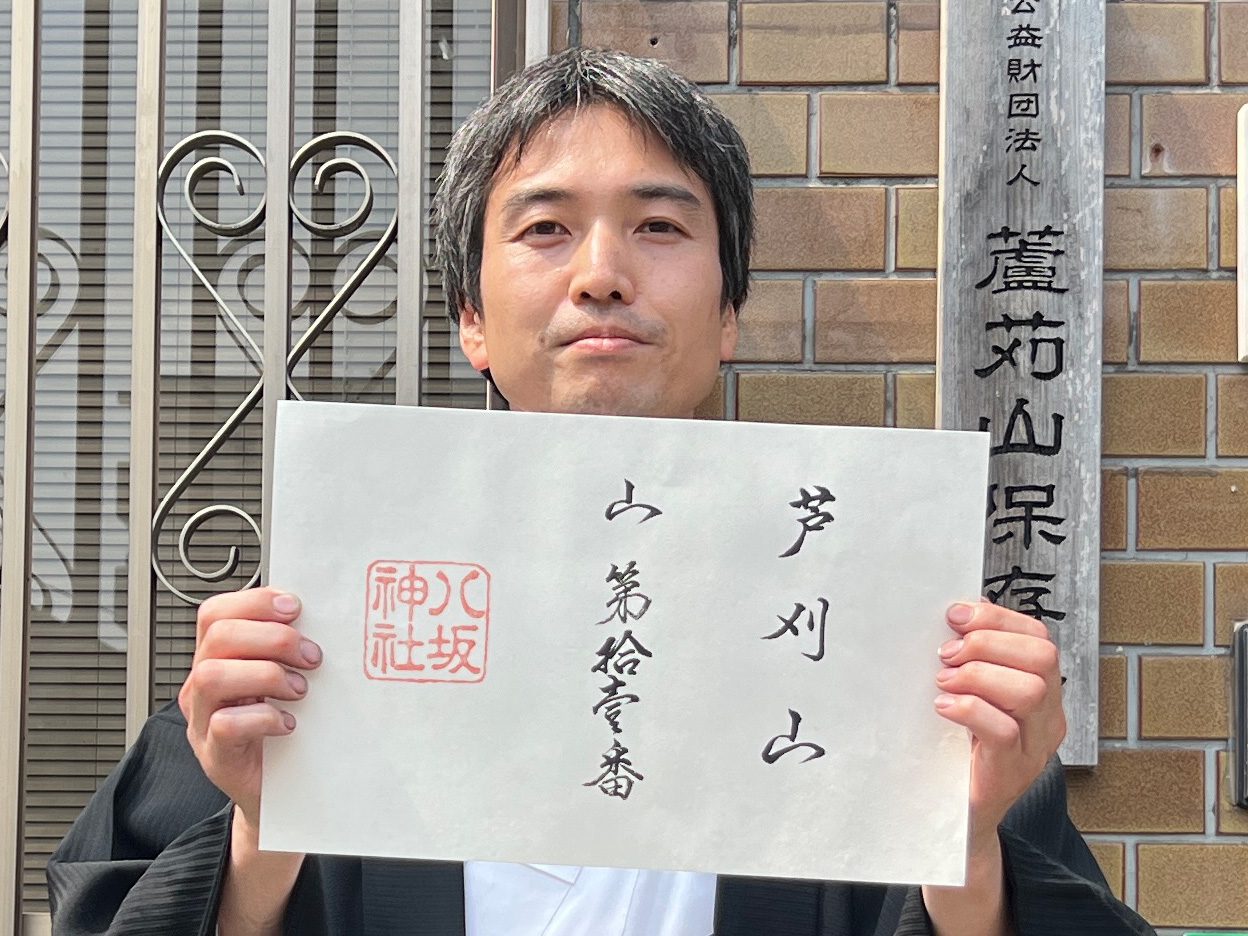 公益財団法人
蘆苅山保存
芦刈山
山第拾壹番
八坂
神社